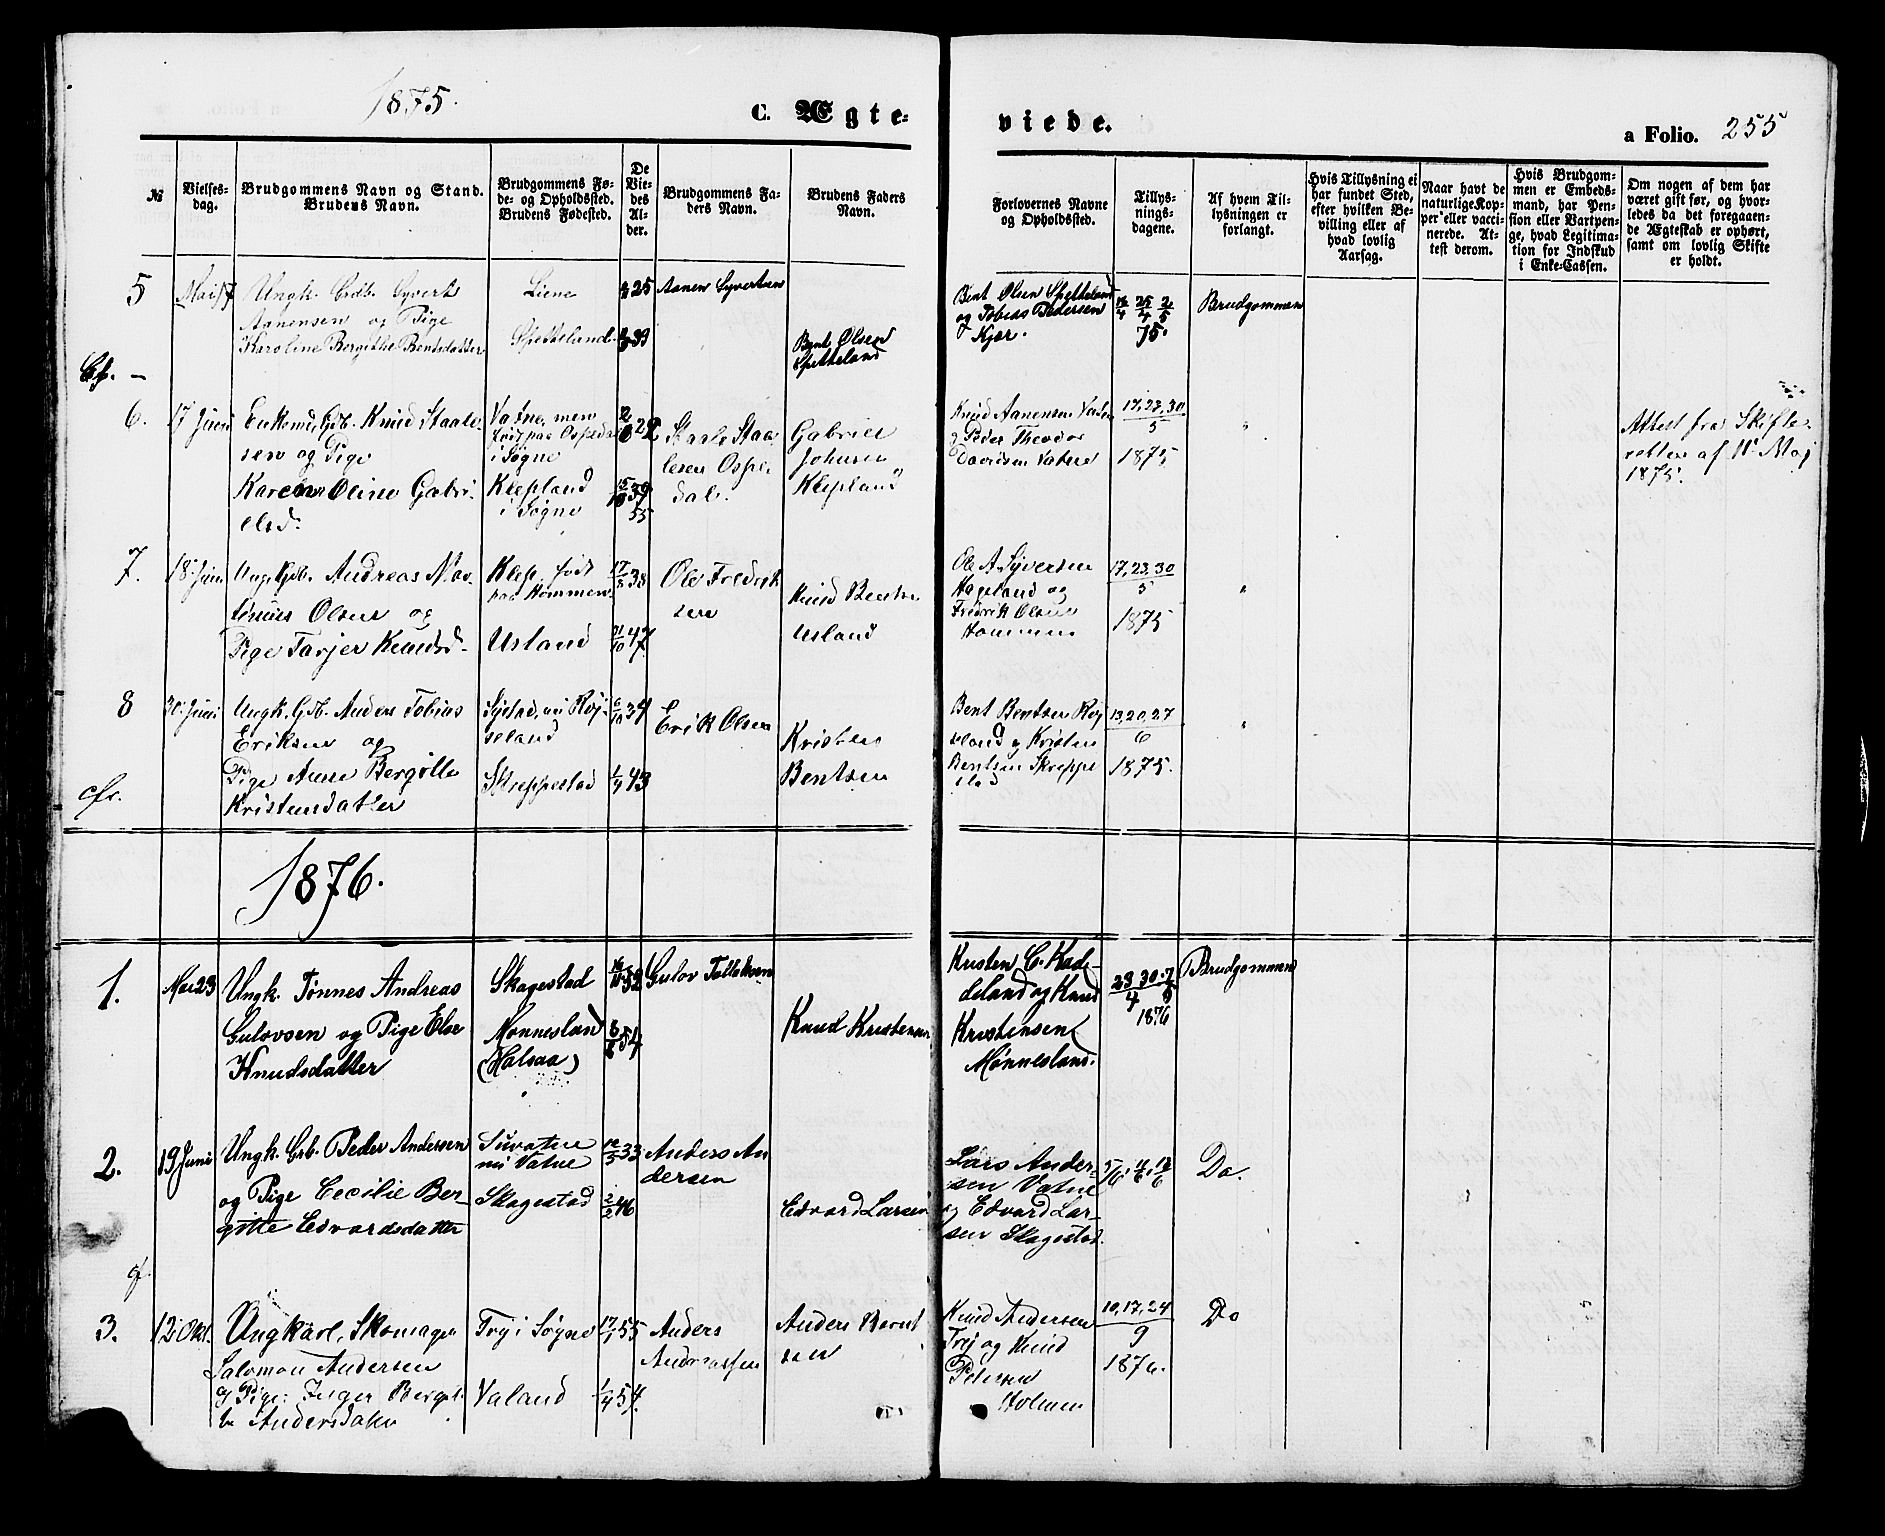 1875.
C. Ægte-
viede.
a Folio. 255
№
Vielses-
dag.
Brudgommens Navn og Stand.
Brudens Navn.
Brudgommens Fø-
de- og Opholdssted.
Brudens Fødested.
De
Vie-
des
Al-
der.
Brudgommens Fa-
ders Navn.
Brudens Faders
Navn.
Forlovernes Navne
og Opholdssted.
Tillys-
nings-
dagene.
Af hvem Til-
lysningen er
forlangt.
Hvis Tillysning ei
har fundet Sted,
efter hvilken Be-
villing eller af
hvad lovlig
Aarsag.
Naar havt de
naturlige Kop-
per eller vacci-
nerede. At-
test derom.
Hvis Brudgom-
men er Embeds-
mand, har Pen-
sion eller Vartpen-
ge, hvad Legitima-
tion for Indskud
i Enke-Cassen.
Om nogen af dem har
været gift før, og hvor-
ledes da det foregaaen-
de Ægteskab er ophørt,
samt om lovlig Skifte
er holdt.
5
Mai 7
Ungk. Grdb. Syvert
Aanensen og Pige
Karoline Bergithe Bentsdatter
Liene
Spetteland
25
39
Aanen Syvertsen
Bent Olsen
Spetteland
Bent Olsen Spetteland
og Tobias Pedersen
Kjær.
18/4 25/4 2/5
75.
Brudgommen
Cf. –
6.
17 Juni
Enkemd, Gdb. Knud Staale-
sen og Pige
Karen Oline Gabri-
elsd.
Vatne, men
født paa Ospedal
i Søgne
Klepland
i Søgne
29
15/10 39
55
Staale Staa-
lesen Ospe-
dal.
Gabriel
Johnsen
Klepland
Knud Aanensen Vatne
og Peder Theodor
Davidsen Vatne
17, 23, 30
5
1875
"
Attest fra Skifte-
retten af 11 Maj
1875.
7.
18 Juni
Ungk. Gdb. Andreas Mar-
tinius Olsen og
Pige Tarjer Knudsd.
Klep, født
paa Hommen
Usland
17/8 38
21/10 47.
Ole Fredrik
sen
Knud Bentsen
Usland
Ole A. Syversen
Hageland og
Fredrik Olsen
Hommen
17, 23, 30
5
1875
"
8
30 Juni
Ungk. Gdb. Anders Tobias
Eriksen og
Pige Anne Bergitte
Kristensdatter
nu Røj-
seland
Skreppestad
6/10 34
1/4 43
Erik Olsen
Kristen
Bentsen
Bent Bentsen Røj
seland og Kristen
Bentsen Skreppe
stad
13, 20, 27
6
1875.
"
cfr.
1876.
1.
Mai 23
Ungk. Tønnes Andreas
Gulovsen og Pige Else
Knudsdatter
Skagestad
Monnesland
(Halsaa)
16/11 52
54
Gulov Tollaksen
Knud Kristensen
Kristen C. Kade-
deland og Knud
Kristensen
Mønnesland.
23 30. 7
4 5
1876
Brudgommen
2.
19 Juni
Ungk. Grb. Peder Andersen
og Pige Cecilie Ber-
gitte Edvardsdatter
Suvatne
nu Vatne
Skagestad
12/5 33
2/2 46
Anders An
dersen
Edvard Larsen
Lars Ander-
sen Vatne
og Edvard Lar-
sen Skagestad.
5/6, 11/6, 18/6
Do.
cf.
3.
12 Okt.
Ungkarl, Skomager
Salomon Andersen
og Pige: Inger Bergit-
te Andersdatter
Try i Søgne
Valand
17/1 55
1/4 54.
Anders
Andreassen
Anders Bernt
sen
Knud Andersen
Trej og Knud
Petersen
Holmen
10, 17, 24
9
1876.
Do